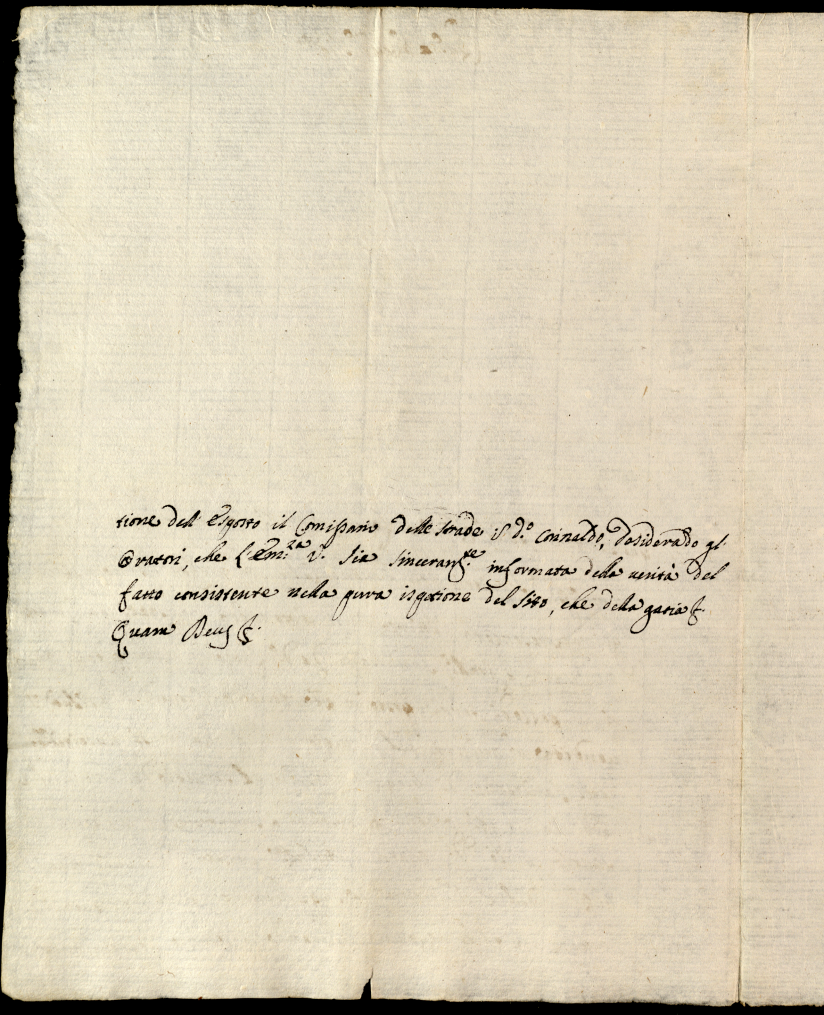 tione dell' Esposto il Comissario delle strade S. d.º Corinaldo, desiderādo gl'
Oratori, che l'Em.za V. sia sinceram.te informata della verità del
fatto consistente nella pura ispetione del sito, che della gratia &.
Quam Deus &.